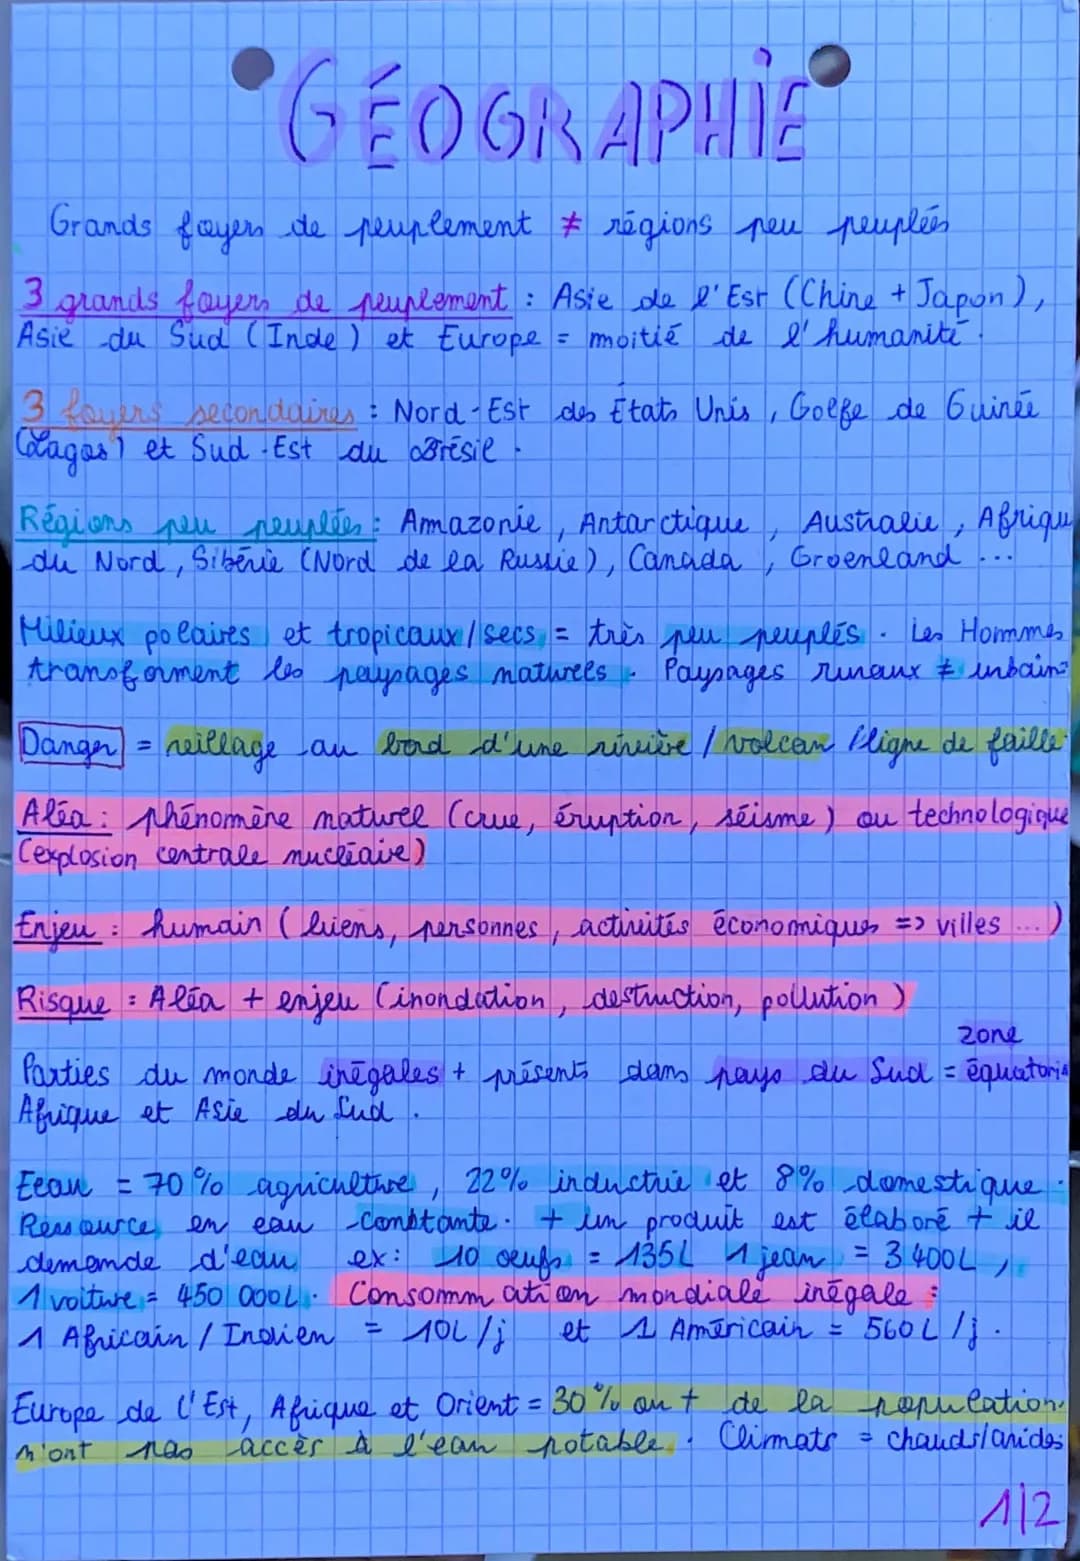 GÉOGRAPHIE
Grands foyers de peuplement ≠ régions peu peuplées
3 grands foyers de peuplement : Asie de l'Est (Chine + Japon),
Asie du Sud (Inde) et Europe = moitié de l'humanité.
3 foyers secondaires : Nord-Est des États Unis, Golfe de Guinée
(Lagos) et Sud-Est du Brésil.
Régions peu peuplées : Amazonie, Antarctique, Australie, Afrique
du Nord, Sibérie (Nord de la Russie), Canada, Groenland ...
Milieux polaires et tropicaux/secs = très peu peuplés. Les Hommes
transforment les paysages naturels. Paysages ruraux ≠ urbains
Danger = village au bord d'une rivière / volcan / ligne de faille
Aléa : phénomène naturel (crue, éruption, séisme) ou technologique
(explosion centrale nucléaire)
Enjeu : humain (biens, personnes, activités économiques => villes ...)
Risque : Aléa + enjeu (inondation, destruction, pollution)
zone
Parties du monde inégales + présents dans pays du Sud = équatoria
Afrique et Asie du Sud.
Eeau = 70% agriculture, 22% industrie et 8% domestique.
Ressource en eau constante. + un produit est élaboré + il
demande d'eau ex: 10 oeufs = 135L 1 jean = 3 400L,
1 voiture = 450 000L. Consommation mondiale inégale :
1 Africain / Indien = 10L/j et 1 Américain = 560L/j.
Europe de l'Est, Afrique et Orient = 30% ou + de la population
n'ont pas accès à l'eau potable. Climats = chauds/arides
1/2